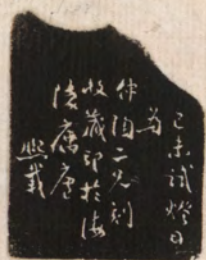 己未試燈日
為
仲陶二兄刻
收藏印於海
陵寓廬
熙載